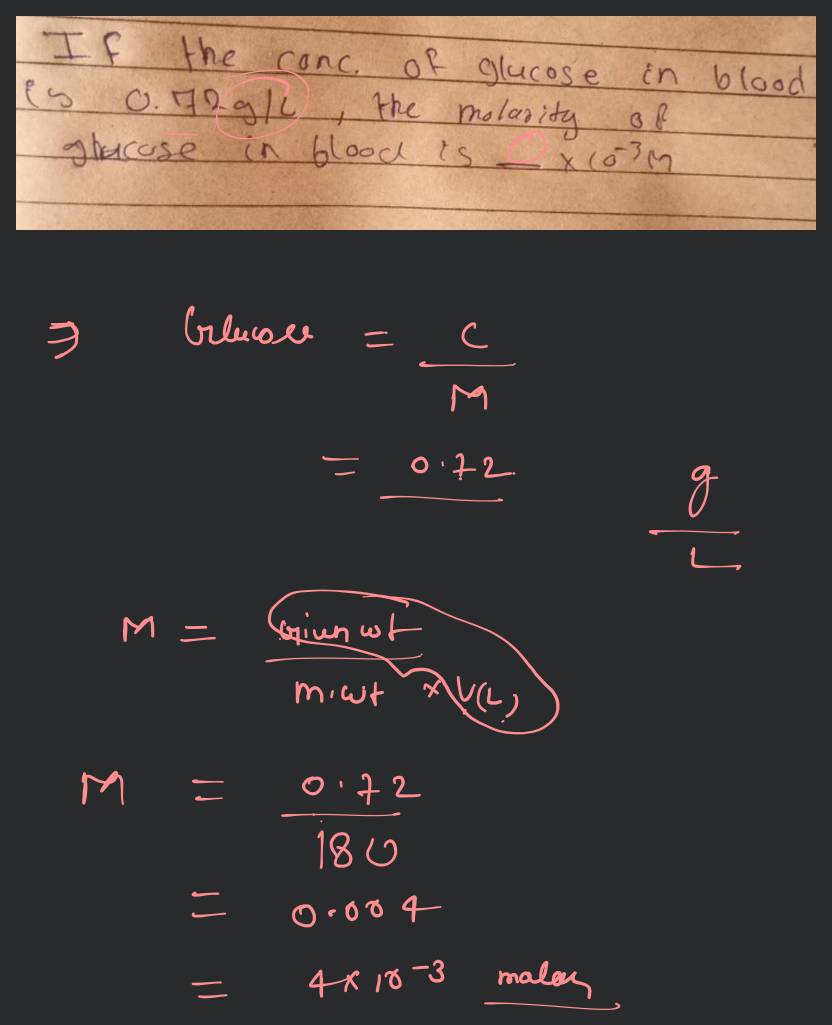 If the conc. of glucose in blood
is 0.72 g/L, the molarity of
glucose in blood is __ ×10⁻³M
⇒ Glucose = C
M
= 0.72
g
L
M = given wt
m.wt × V(L)
M = 0.72
180
= 0.004
= 4×10⁻³ molar